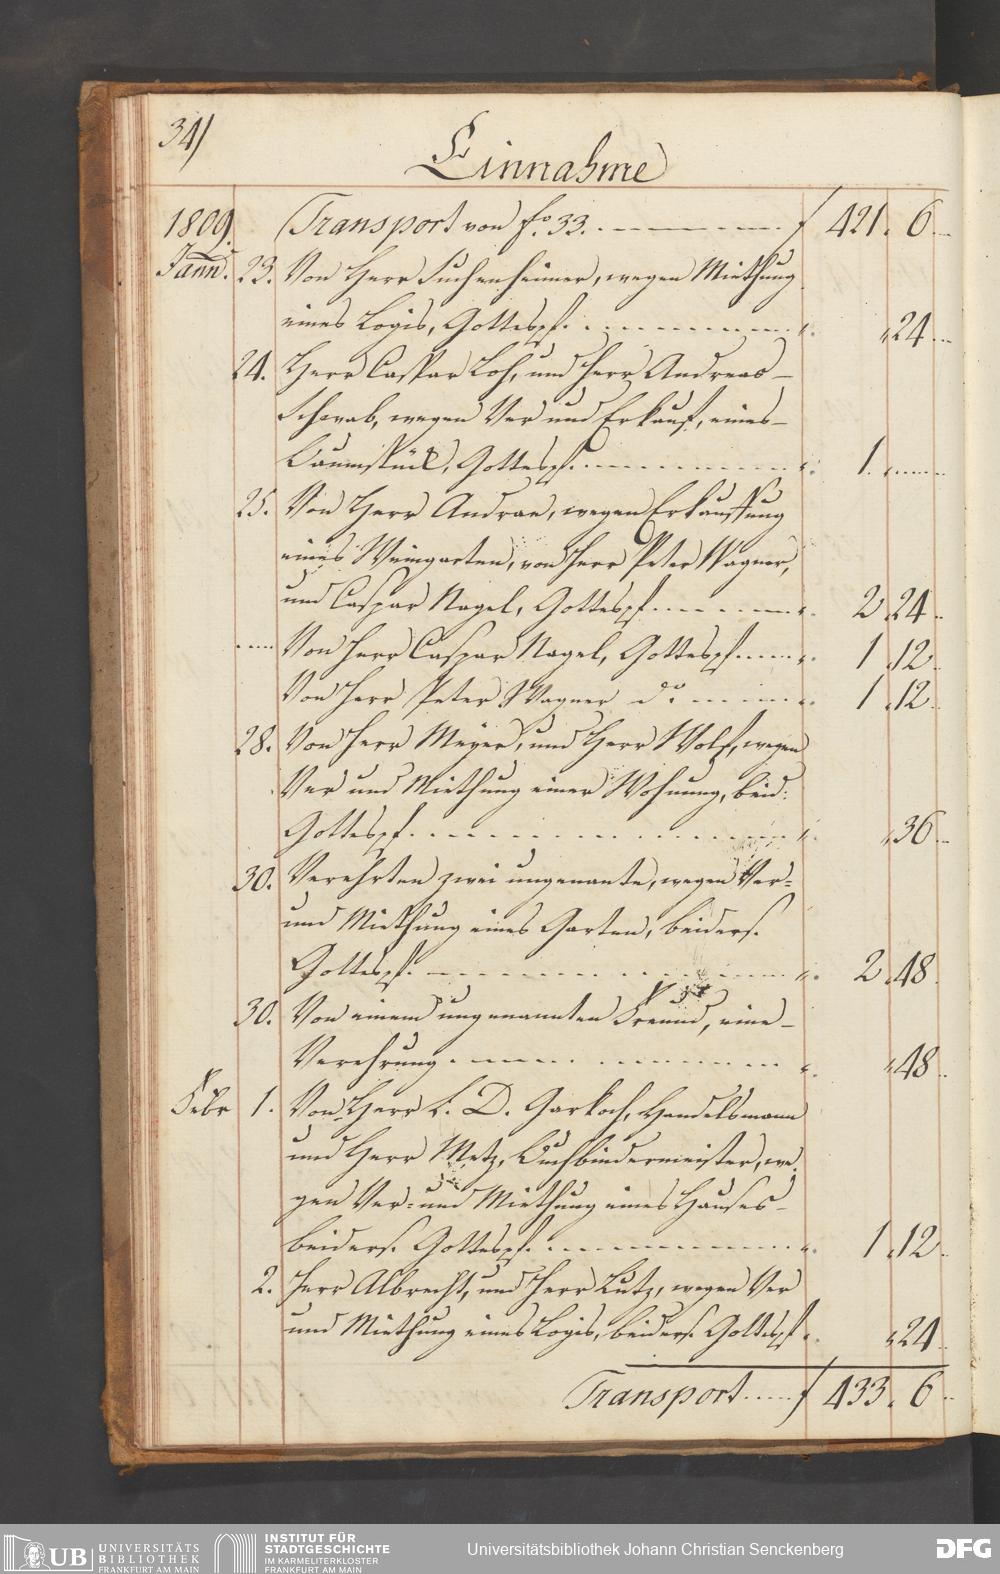 34)
Einnahme
1809. Transport von fo. 33. f 421. 6.
Jann. 23. Von Herr Fuchenheimer, wegen Miethung
eines Logis, Gottespf. " 24
24. Herr Caspar Loh, und Herr Andreas
Schwab, wegen Ver und Erkauf, eines
Baumstück, Gottespf. " 1.
25. Von Herr Andrae, wegen Erkauffung
eines Weingarten, von Herr Peter Wagner,
und Caspar Nagel, Gottespf. " 2 24
Von Herr Caspar Nagel, Gottespf. " 1 12
Von Herr Peter Wagner do " 1 12
28. Von Herr Meyer, und Herr Wolf, wegen
Ver und Miethung einer Wohnung, beid:
Gottespf. " 36
30. Verehrten zwei ungenante, wegen Ver=
und Miethung eines Garten, beiders.
Gottespf. " 2 48
30. Von einem ungenannten Freund, eine
Verehrung " 48
Febr 1. Von Herr L. D. Garkoch, Handelsmann
und Herr Metz, Buchbindermeister, we
gen Ver= und Miethung eines Hauses
beiders. Gottespf. " 1 12
2. Herr Albrecht, und Herr Lutz, wegen Ver
und Miethung eines Logis, beiders. Gottespf " 24
Transport f 433. 6
UB UNIVERSITÄTS
BIBLIOTHEK
FRANKFURT AM MAIN
INSTITUT FÜR
STADTGESCHICHTE
IM KARMELITERKLOSTER
FRANKFURT AM MAIN
Universitätsbibliothek Johann Christian Senckenberg
DFG